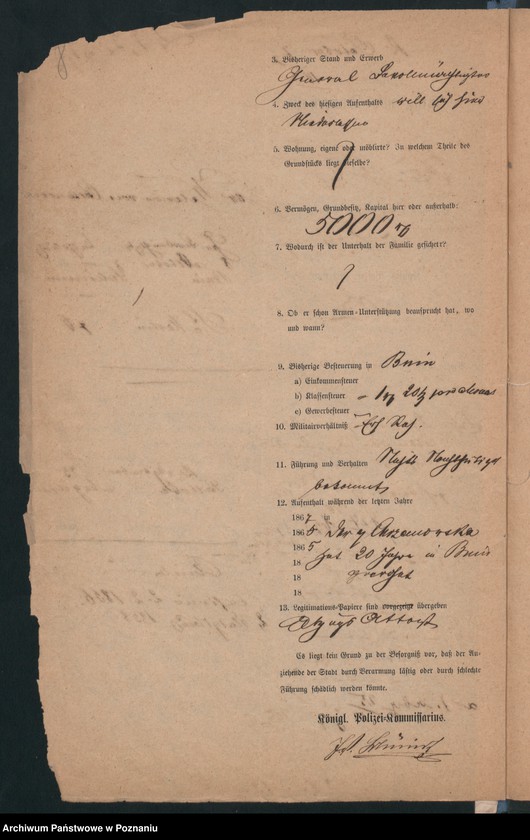 3. Bisheriger Stand und Erwerb
General Bevollmächtigter
4. Zweck des hiesigen Aufenthalts will sich hier
Niederlassen
5. Wohnung, eigene oder möblirte? In welchem Theile des
Grundstücks liegt dieselbe?
6. Vermögen, Grundbesitz, Kapital hier oder außerhalb:
5000
7. Wodurch ist der Unterhalt der Familie gesichert?
8. Ob er schon Armen-Unterstützung beansprucht hat, wo
und wann?
9. Bisherige Besteuerung in Bnin
a) Einkommensteuer
b) Klassensteuer
c) Gewerbesteuer
10. Militairverhältniß
11. Führung und Verhalten Nichts Nachtheiliges
bekannt
12. Aufenthalt während der letzten Jahre
1867 in
1866
1865 hat 20 Jahre in Bnin
18 gewohnt
18
18
13. Legitimations-Papiere sind vorgezeigt übergeben
Abzugs Attest
Es liegt kein Grund zu der Besorgniß vor, daß der An-
ziehende der Stadt durch Verarmung lästig oder durch schlechte
Führung schädlich werden könnte.
Königl. Polizei-Kommissarius.
Archiwum Państwowe w Poznaniu